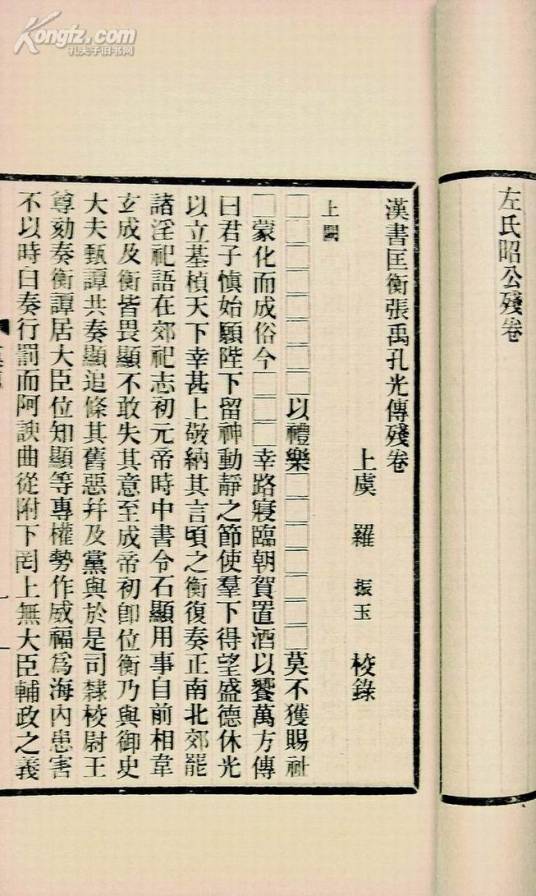 Kongfz.com
孔夫子旧书网
左氏昭公殘卷
漢書匡衡張禹孔光傳殘卷
上虞 羅 振玉 校錄
上闕
□□□□□□□以禮樂□□□□□□□莫不獲賜祉
□蒙化而成俗今□□□幸路寢臨朝賀置酒以饗萬方傳
曰君子愼始願陛下留神動靜之節使羣下得望盛德休光
以立基楨天下幸甚上敬納其言頃之衡復奏正南北郊罷
諸淫祀語在郊祀志初元帝時中書令石顯用事自前相韋
玄成及衡皆畏顯不敢失其意至成帝初卽位衡乃與御史
大夫甄譚共奏顯追條其舊惡幷及黨與於是司隸校尉王
尊劾奏衡譚居大臣位知顯等專權勢作威福爲海內患害
不以時白奏行罰而阿諛曲從附下罔上無大臣輔政之義